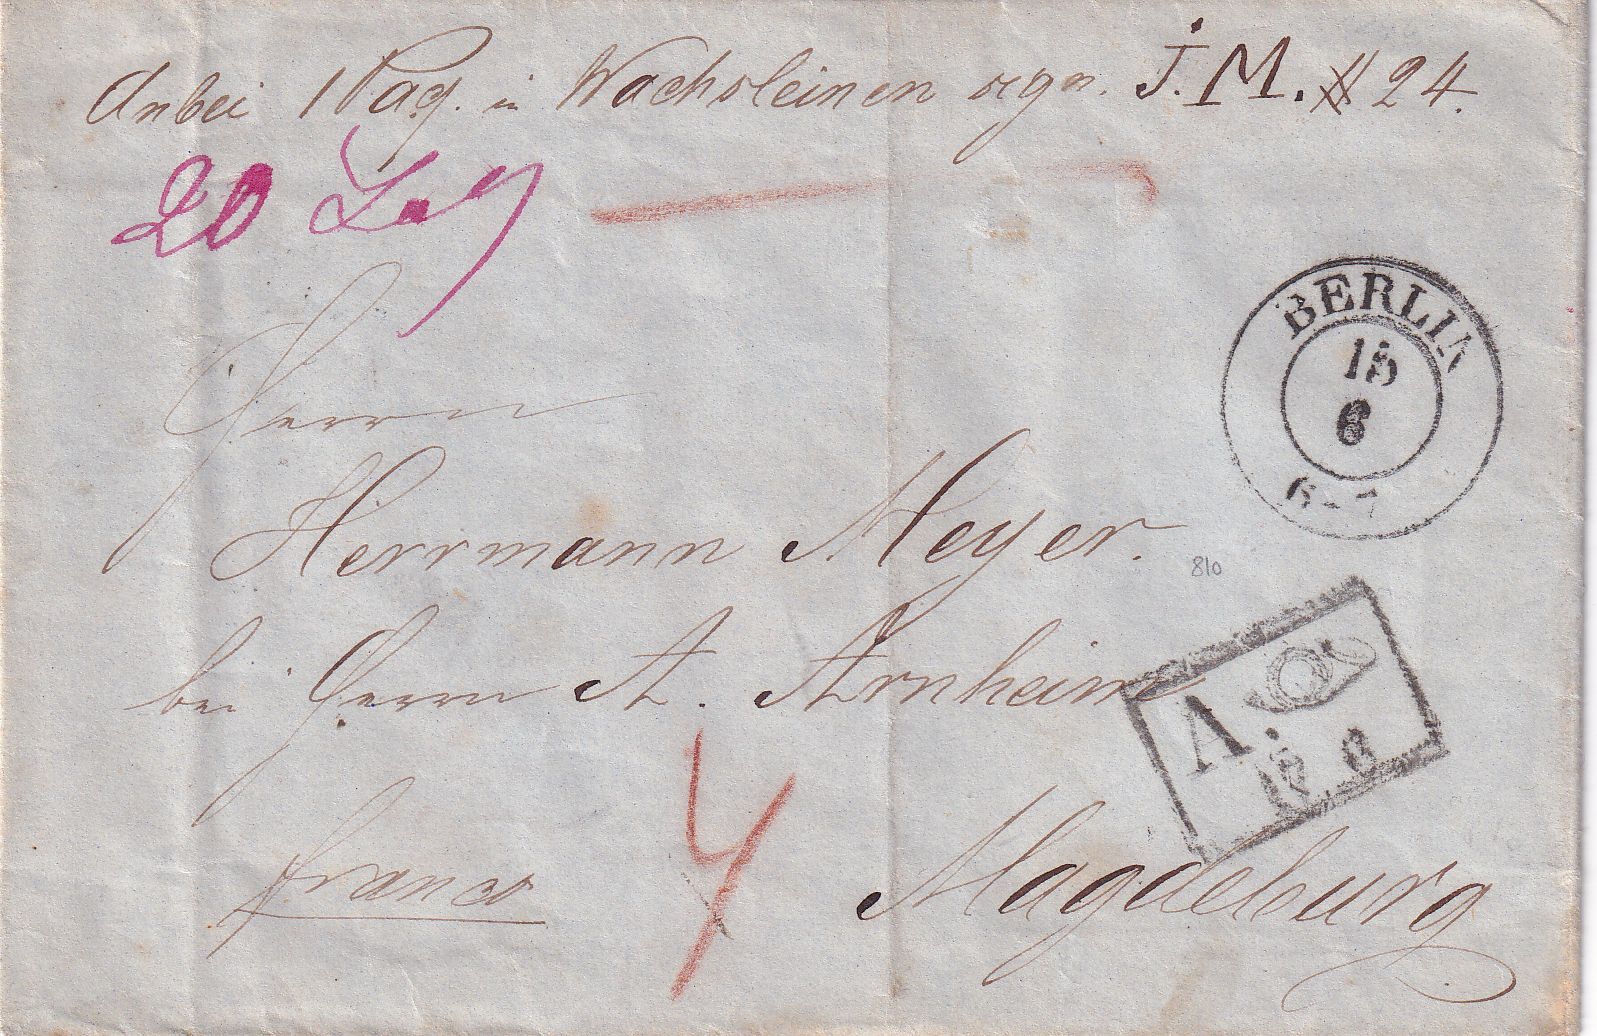 Anbei 1 Paq. in Wachsleinen sign. J. M. # 24.
20
BERLIN
15
6
6-7
Herrn
Herrmann Meyer.
810
bei Herrn A. Arnheim
A.
15 6
franco
4
Magdeburg